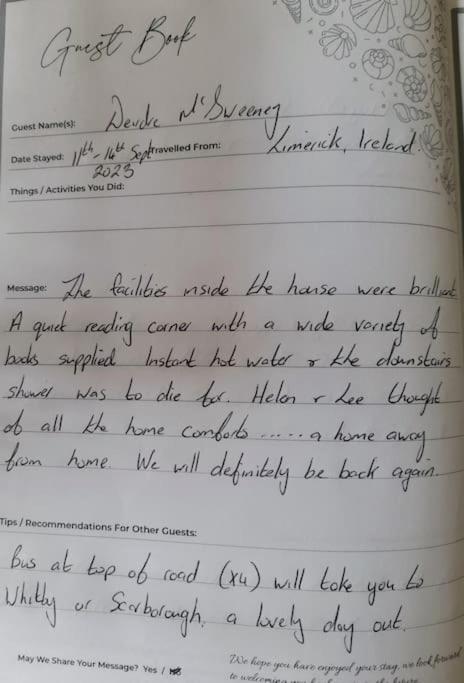 Guest Book
Guest Name(s): Deirdre McSweeney
Date Stayed: 11th - 14th Sept Travelled From: Limerick, Ireland.
2023
Things / Activities You Did:
Message: The facilities inside the house were brilliant
A quiet reading corner with a wide variety of
books supplied Instant hot water & the downstairs
shower was to die for. Helen & Lee thought
of all the home comforts ..... a home away
from home. We will definitely be back again.
Tips / Recommendations For Other Guests:
Bus at top of road (X4) will take you to
Whitby or Scarborough, a lovely day out.
May We Share Your Message? Yes / No
We hope you have enjoyed your stay, we look forward
to welcoming you back